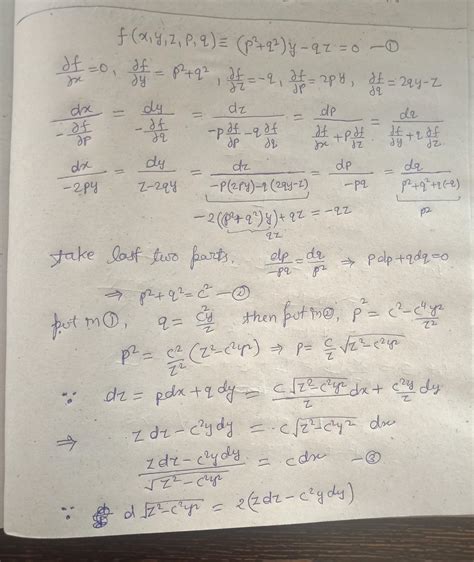 f(x,y,z,p,q) ≡ (p²+q²)y − qz = 0 —①
∂f/∂x = 0, ∂f/∂y = p²+q², ∂f/∂z = −q, ∂f/∂p = 2py, ∂f/∂q = 2qy−z
dx/(−∂f/∂p) = dy/(−∂f/∂q) = dz/(−p ∂f/∂p − q ∂f/∂q) = dp/(∂f/∂x + p ∂f/∂z) = dq/(∂f/∂y + q ∂f/∂z)
dx/(−2py) = dy/(z−2qy) = dz/(−p(2py)−q(2qy−z)) = dp/(−pq) = dq/(p²+q²+q(−q))
−2((p²+q²)y)+qz = −qz
qz
p²
take last two parts. dp/(−pq) = dq/p² ⇒ pdp+qdq=0
⇒ p²+q²=c² —②
put in ①, q = c²y/z then put in ②, p² = c² − c⁴y²/z²
p² = c²/z² (z²−c²y²) ⇒ p = c/z √(z²−c²y²)
∵ dz = pdx + qdy = c√(z²−c²y²)/z dx + c²y/z dy
⇒ z dz − c²y dy = c√(z²−c²y²) dx
(z dz − c²y dy)/√(z²−c²y²) = c dx —③
∵ d √(z²−c²y²) = 2(z dz − c²y dy)